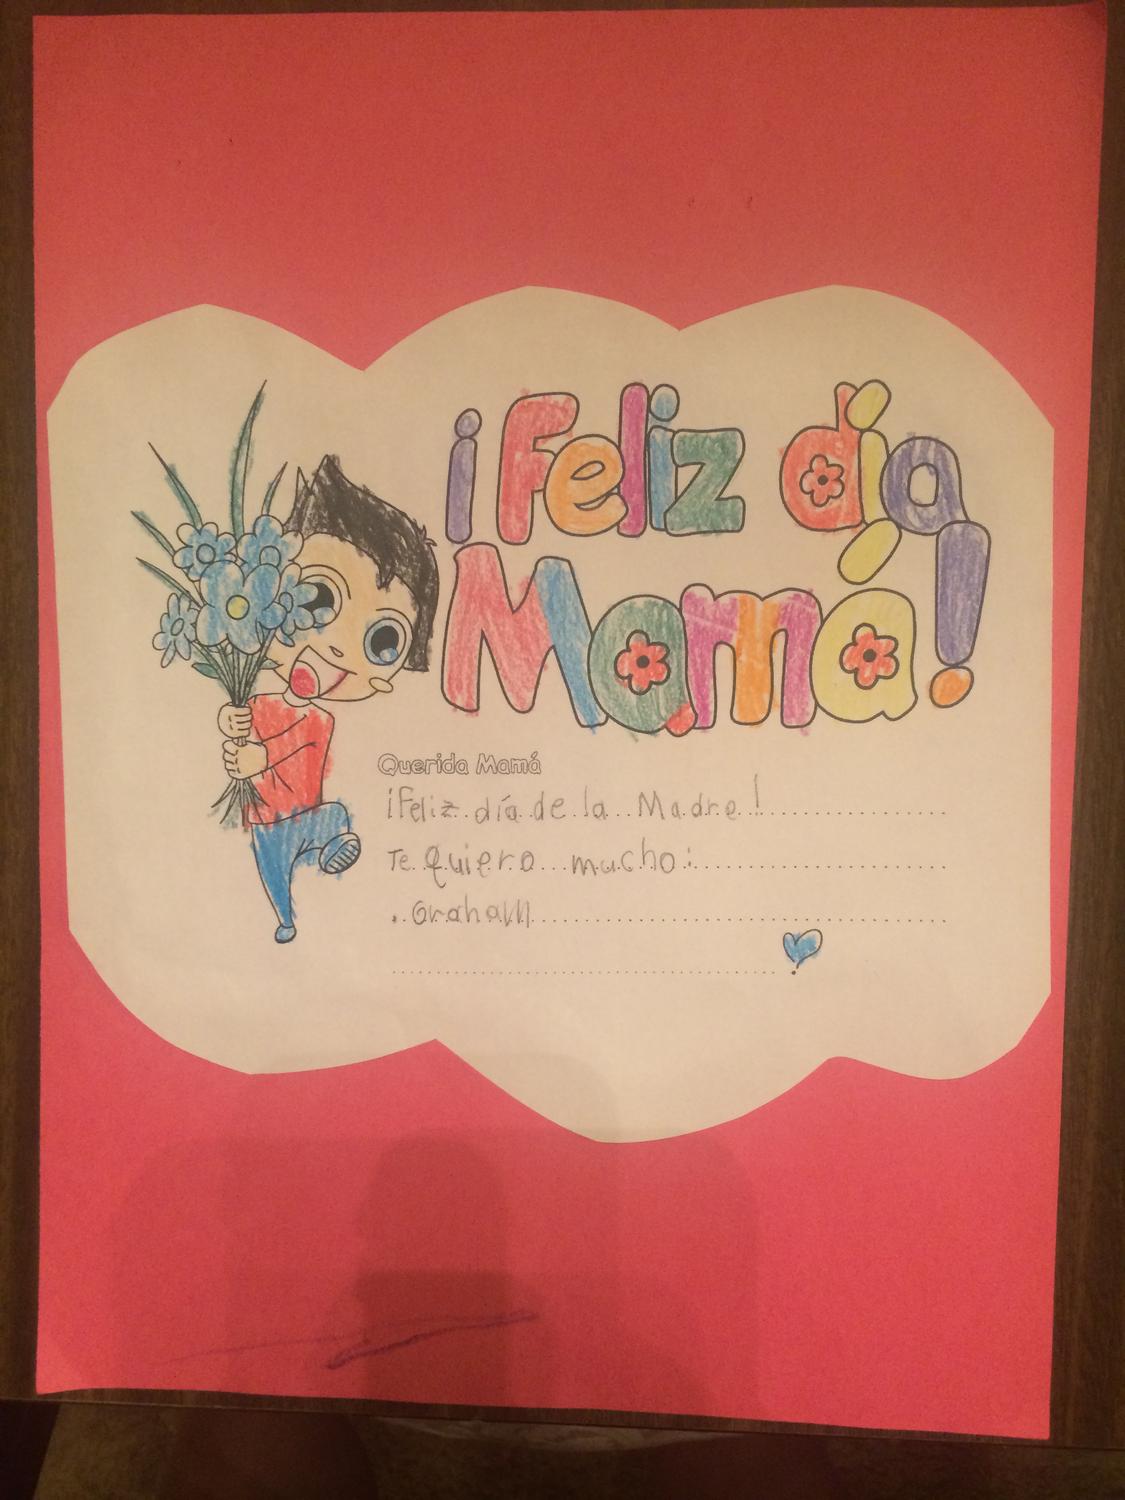 ¡Feliz día
Mamá!
Querida Mamá
¡Feliz día de la Madre!
Te quiero mucho:
.Graham